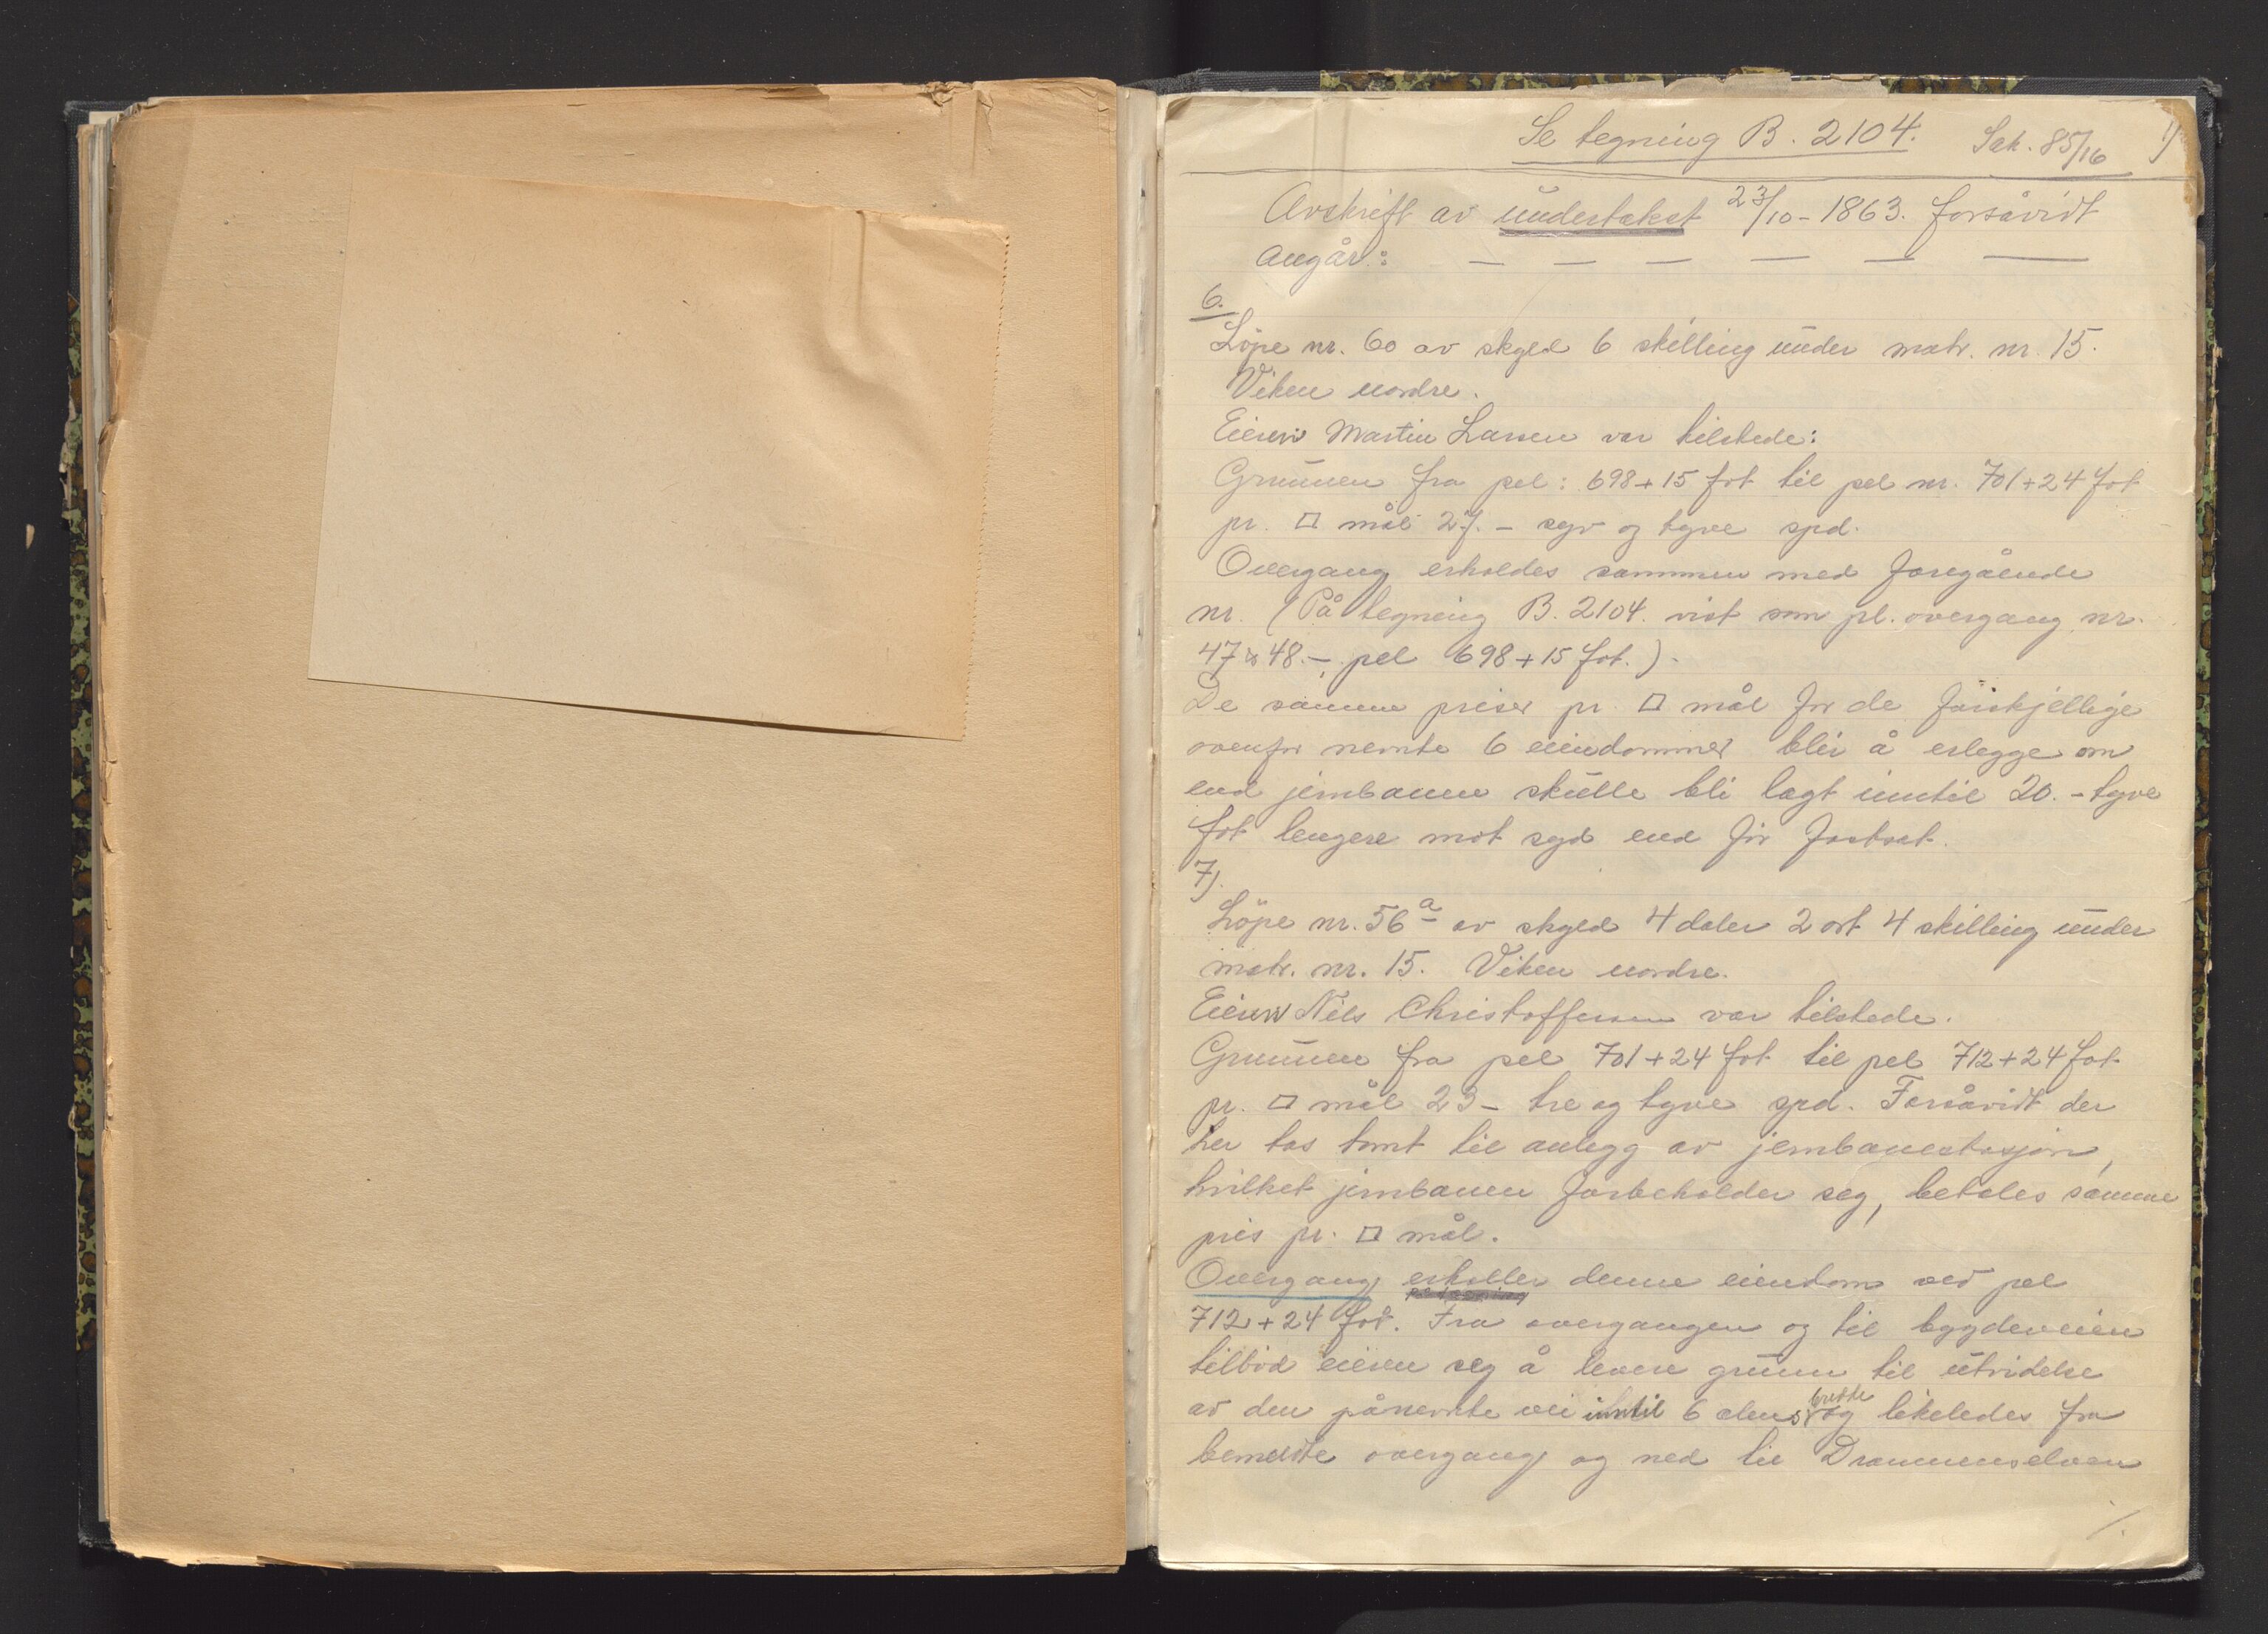 Se tegning B. 2104. Sak. 85/16 1)
Avskrift av undertakst 23/10-1863. forsåvidt
angår: — — — — — —
6.
Löpe nr. 60 av skyld 6 skilling under matr. nr. 15.
Viken nordre.
Eieren Martin Larsen var tilstede:
Grunnen fra pel: 698+15 fot til pel nr. 701+24 fot
pr. □ mål 27.- syv og tyve spd.
Overgang erholdes sammen med foregående
nr. (På tegning B. 2104. vist som pl. overgang nr.
47 & 48.-, pel 698+15 fot.).
De samme priser pr. □ mål for de forskjellige
ovenfor nevnte 6 eiendommer blir å erlegge om
end jernbanen skulle bli lagt inntil 20.- tyve
fot lengere mot syd end för fastsat.
7).
Löpe nr. 56a av skyld 4 daler 2 ort 4 skilling under
matr. nr. 15. Viken nordre.
Eieren Nils Christoffersen var tilstede.
Grunnen fra pel 701+24 fot til pel 712+24 fot
pr. □ mål 23- tre og tyve spd. Forsåvidt der
her tas tomt til anlegg av jernbanestasjon,
hvilket jernbanen forbeholder seg, betales samme
pris pr. □ mål.
Overgang erholder denne eiendom ved pel
712+24 fot. Fra overgangen og til bygdeveien
tilbød eieren seg å levere grunn til utvidelse
av den pånevnte vei inntil 6 alens bredde og likeledes fra
bemeldte overgang og ned til Drammenselven
/.